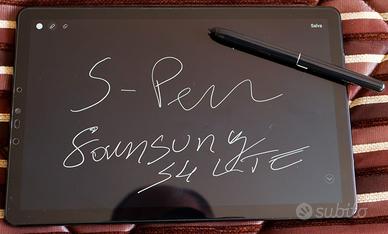 Salva
S-Pen
Samsung
S4 LTE
subito